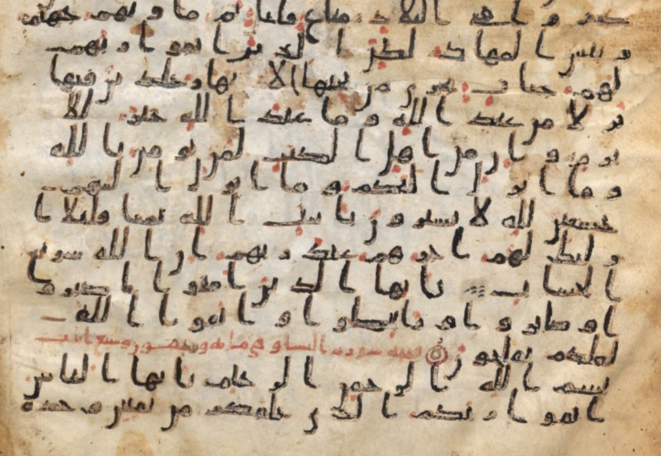 كفروا في البلد متاع قليل ثم ماويهم جهنم
وبئس المهاد لكن الذين اتقوا ربهم
لهم جنات تجري من تحتها الانهر خلدين فيها
نزلا من عند الله وما عند الله خير للا
برر وان من اهل الكتب لمن يومن بالله
وما انزل اليكم وما انزل اليهم
خشعين لله لا يشترون بايت الله ثمنا قليلا ا
ولئك لهم اجرهم عند ربهم ان الله سريع
الحساب يايها الذين امنوا اصبرو
ا وصابروا ورابطوا واتقوا الله
لعلكم تفلحون سورة النسا وهي مايه وسبعون ايات
بسم الله الرحمن الرحيم يايها الناس
اتقوا ربكم الذي خلقكم من نفس وحدة